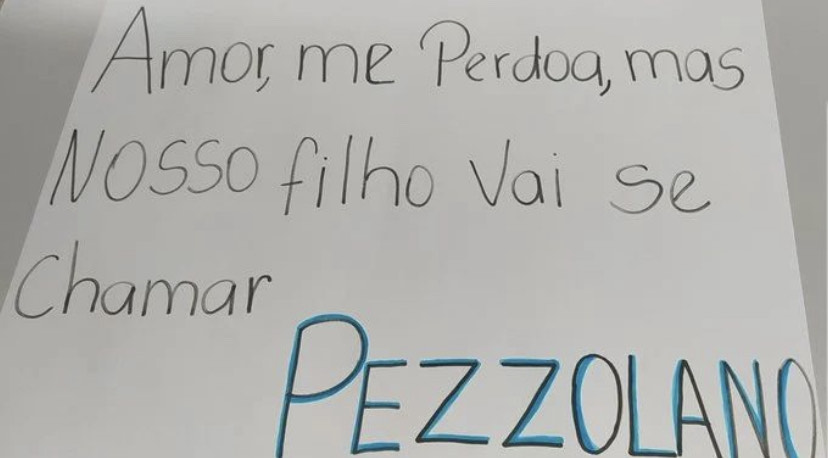 Amor, me Perdoa, mas
NOSSO filho Vai se
Chamar
PEZZOLANO